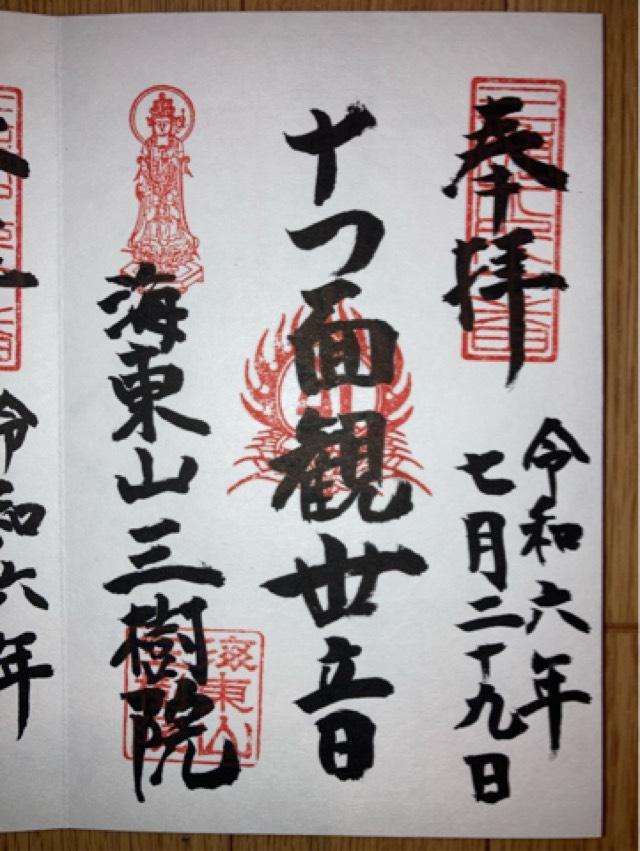 奉拝
令和六年
七月二十九日
十一面観世音
海東山三樹院
令和六年